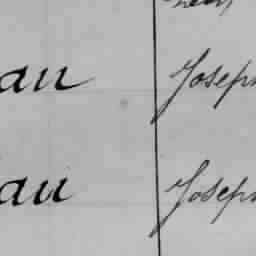 au Joseph
au Joseph